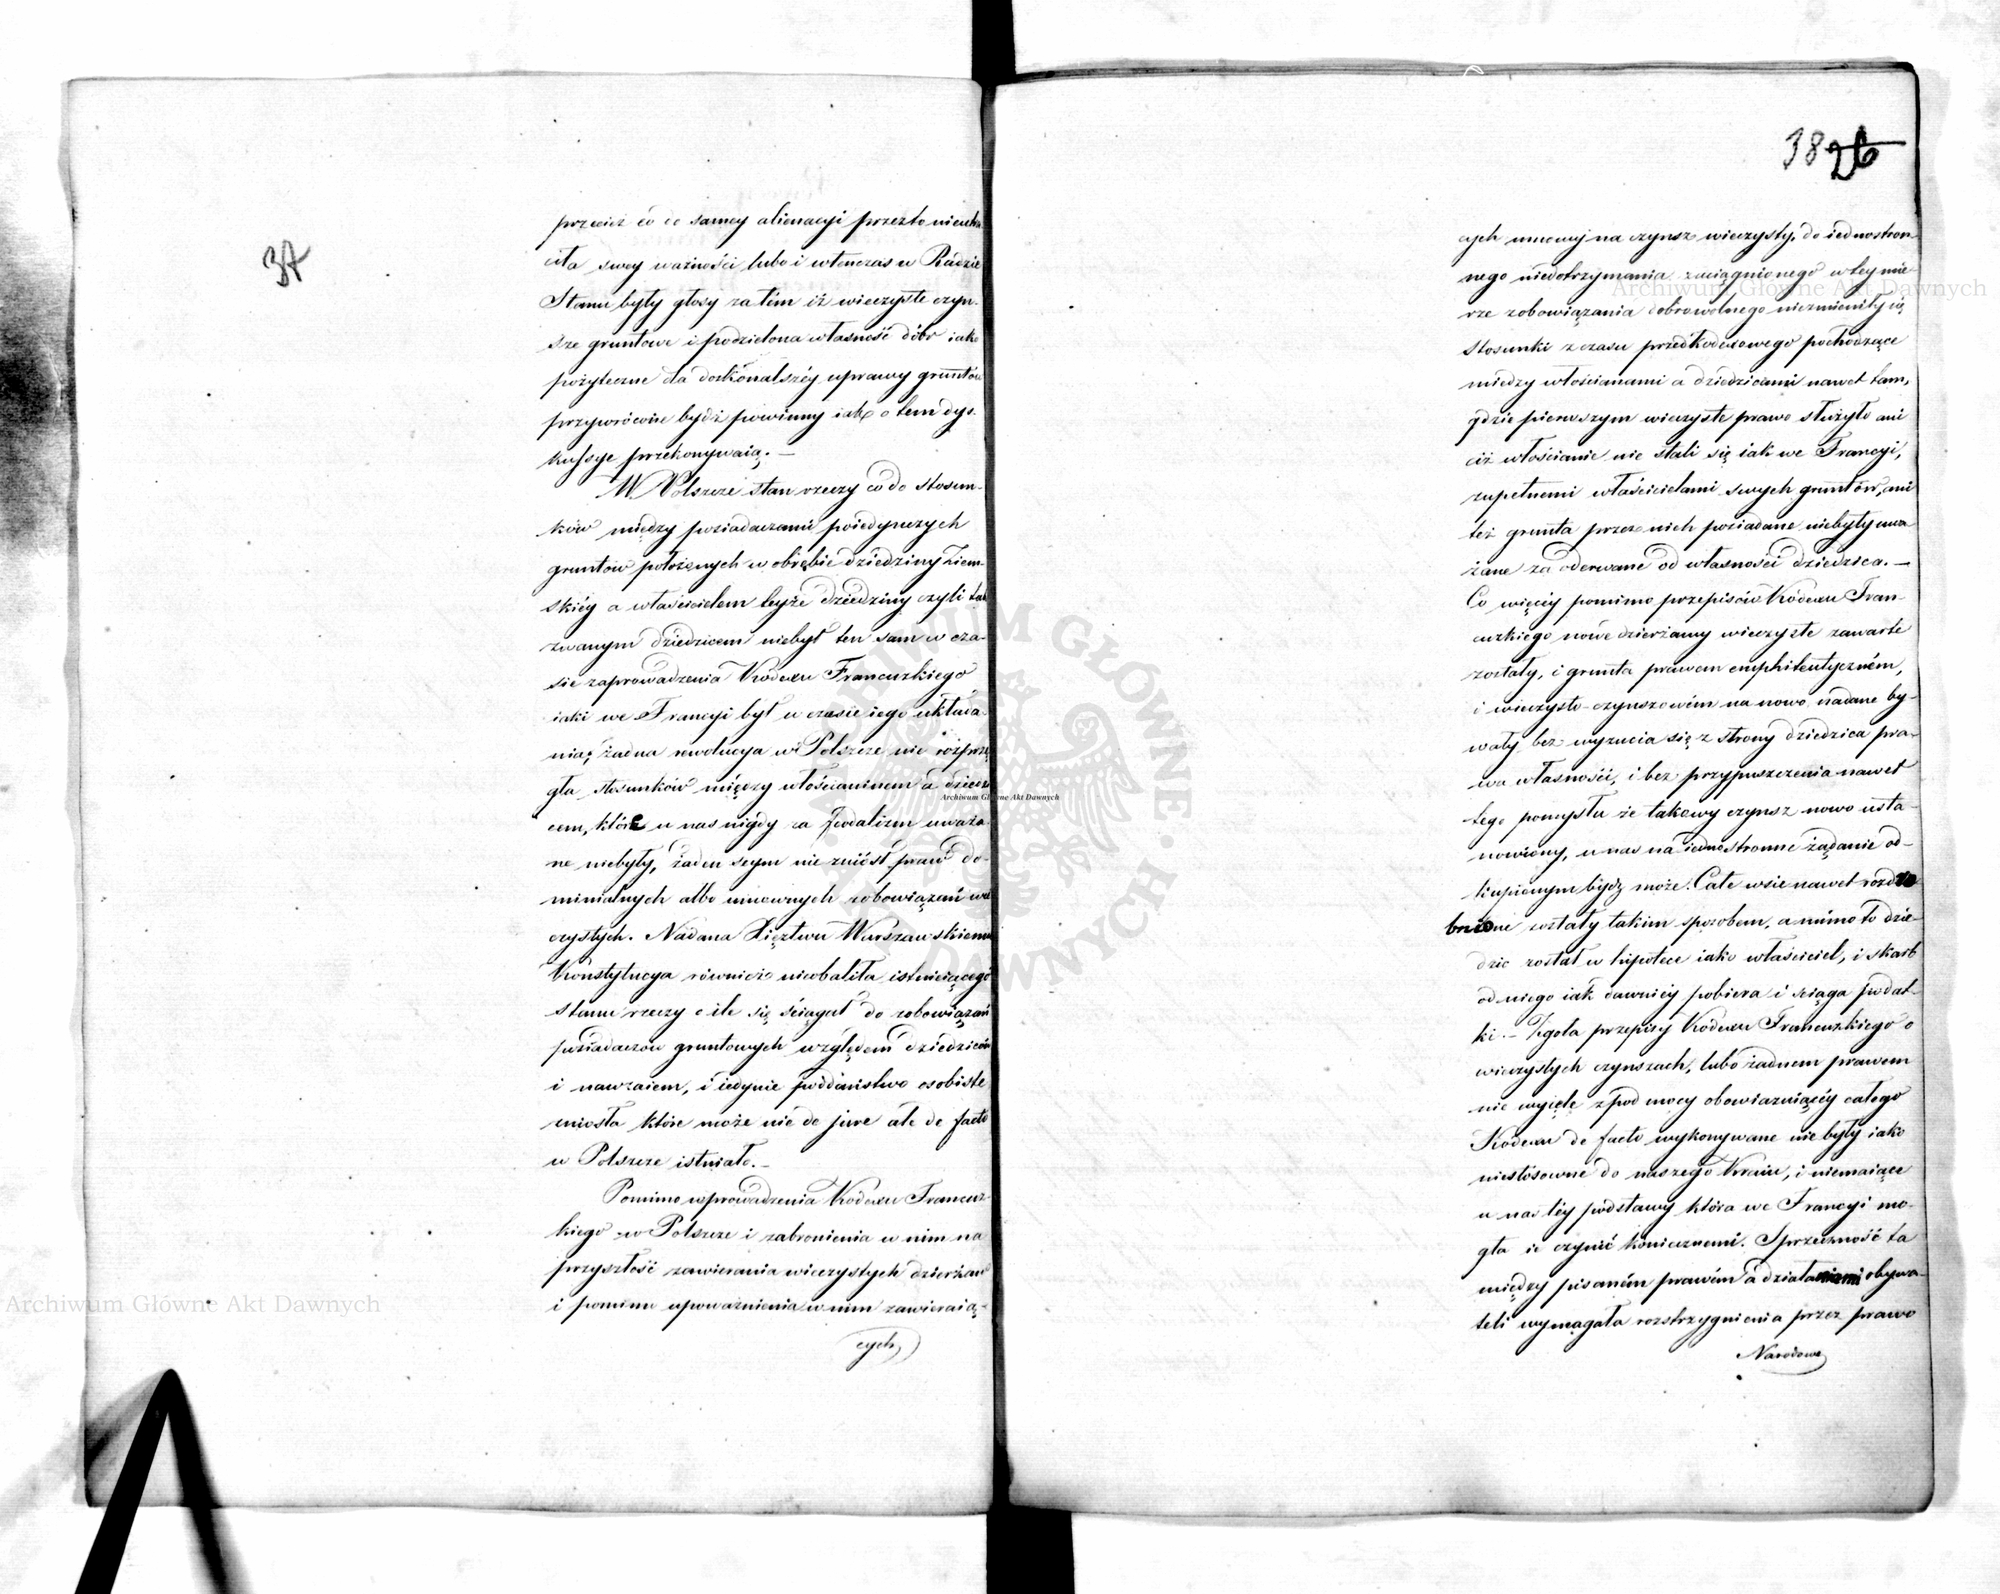 37
przecież co do samey alienacyi przezto nieutra
ciła swey ważności lubo i wtenczas w Radzie
Stanu były głosy za tém iż wieczyste czyn-
sze gruntowe i podzielona własność dóbr iako
pożyteczne dla doskonalszéy uprawy gruntów
przywrócone bydź powinny iak o tem dys-
kussye przekonywaią. —
W Polszcze stan rzeczy co do stosun-
ków między posiadaczami poiedynczych
gruntów położonych w obrębie dziedziny Ziem-
skiéy a właścicielem teyże dziedziny czyli tak
zwanym dziedzicem niebył ten sam w cza-
sie zaprowadzenia Kodexu Francuzkiego
iaki we Francyi był w czasie iego układa-
nia; żadna rewolucya w Polszcze nie rozprzę
gła stosunków między włościaninem a dziedzi
cem, które u nas nigdy za feodalizm uważa-
ne niebyły, żaden seym nie zniósł praw do-
minialnych albo umownych zobowiązań wie
czystych. Nadana Xięztwu Warszawskiemu
Konstytucya również nieobaliła istnieiącego
stanu rzeczy o ile się ściągał do zobowiązań
posiadaczów gruntowych względem dziedziców
i nawzaiem, i iedynie poddaństwo osobiste
zniosła które może nie de jure ale de facto
w Polszcze istniało. —
Pomimo wprowadzenia Kodexu Francuz-
kiego w Polszcze i zabronienia w nim na
przyszłość zawierania wieczystych dzierżaw
i pomimo upoważnienia w nim zawieraią-
cych
38 26
cych umowy na czynsz wieczysty, do iednostron-
nego niedotrzymania zaciągnionego w tey mie-
rze zobowiązania dobrowolnego niezmieniły się
stosunki z czasu przedkodexowego pochodzące
między włościanami a dziedzicami nawet tam,
gdzie pierwszym wieczyste prawo służyło ani
ciż włościanie nie stali się iak we Francyi,
zupełnemi właścicielami swych gruntów, ani
też grunta przez nich posiadane niebyły uwa
żane za oderwane od własności dziedzica. —
Co więcéy pomimo przepisów Kodexu Fran-
cuzkiego nowe dzierżawy wieczyste zawarte
zostały, i grunta prawem emphiteutyczném,
i wieczysto-czynszowém na nowo nadane by-
wały bez wyzucia się z strony dziedzica pra-
wa własności, i bez przypuszczenia nawet
tego pomysłu że takowy czynsz nowo usta-
nowiony, u nas na iednostronne żądanie od-
kupionym bydź może. Całe wsie nawet rozdro
bnione zostały takim sposobem, a mimo to dzie-
dzic został w hipotece iako właściciel, i skarb
od niego iak dawniéy pobiera i ściąga podat-
ki. — Zgoła przepisy Kodexu Francuzkiego o
wieczystych czynszach, lubo żadnem prawem
nie wyięte z pod mocy obowiązuiącéy całego
Kodexu de facto wykonywane nie były iako
niestósowne do naszego Kraiu, i niemaiące
u nas téy podstawy która we Francyi mo-
gła ie czynić koniecznemi. Sprzeczność ta
między pisaném prawém a działaniami obywa-
teli wymagała rozstrzygnienia przez prawo
Narodowe
Archiwum Główne Akt Dawnych
Archiwum Główne Akt Dawnych
Archiwum Główne Akt Dawnych
ARCHIWUM GŁÓWNE AKT DAWNYCH